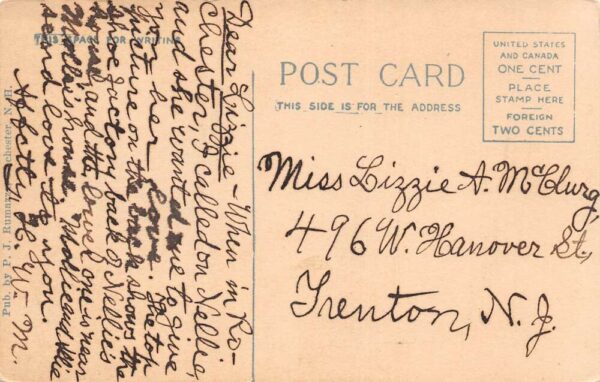 THIS SPACE FOR WRITING
Dear Lizzie - When in Ro-
chester, I called on Nellie,
and she wanted me to give
you her Love. The top
picture on the back shows the
shoe factory back of Nellie's
home, and the lower one is near
Mollie's house. Mollie and Nellie
send love to you.
Affctly H. Wm. M.
Pub. by P. J. Rumar Rochester, N. H.
POST CARD
THIS SIDE IS FOR THE ADDRESS
UNITED STATES
AND CANADA
ONE CENT
PLACE
STAMP HERE
FOREIGN
TWO CENTS
Miss Lizzie A. McClurg,
496 W. Hanover St,
Trenton, N. J.